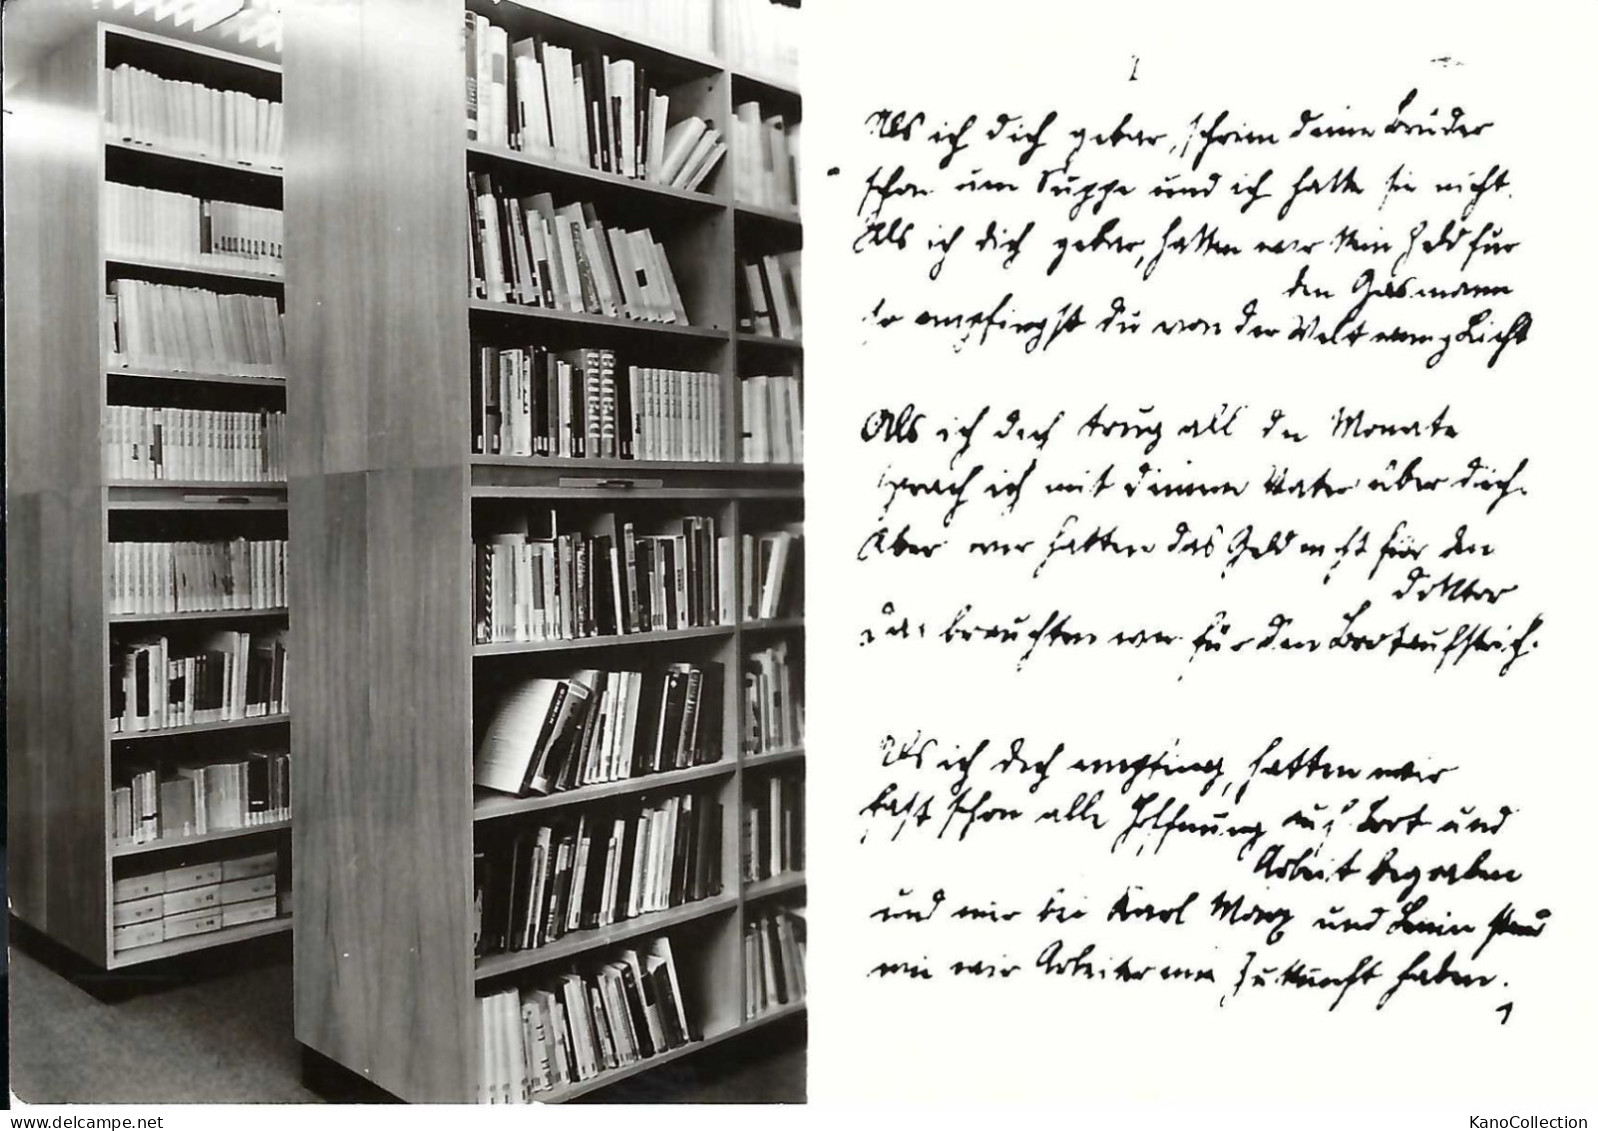 I
Als ich dich gebar, schrien deine Brüder
schon um Suppe und ich hatte sie nicht.
Als ich dich gebar, hatten wir kein Geld für
den Gasmann
So empfingst du von der Welt wenig Licht
Als ich dich trug all die Monate
sprach ich mit deinem Vater über dich.
Aber wir hatten das Geld nicht für den
Doktor
Das brauchten wir für den Brotaufstrich.
Als ich dich empfing, hatten wir
fast schon alle Hoffnung auf Brot und
Arbeit begraben
und nur bei Karl Marx und Lenin stand
wie wir Arbeiter eine Zukunft haben.
KanoCollection